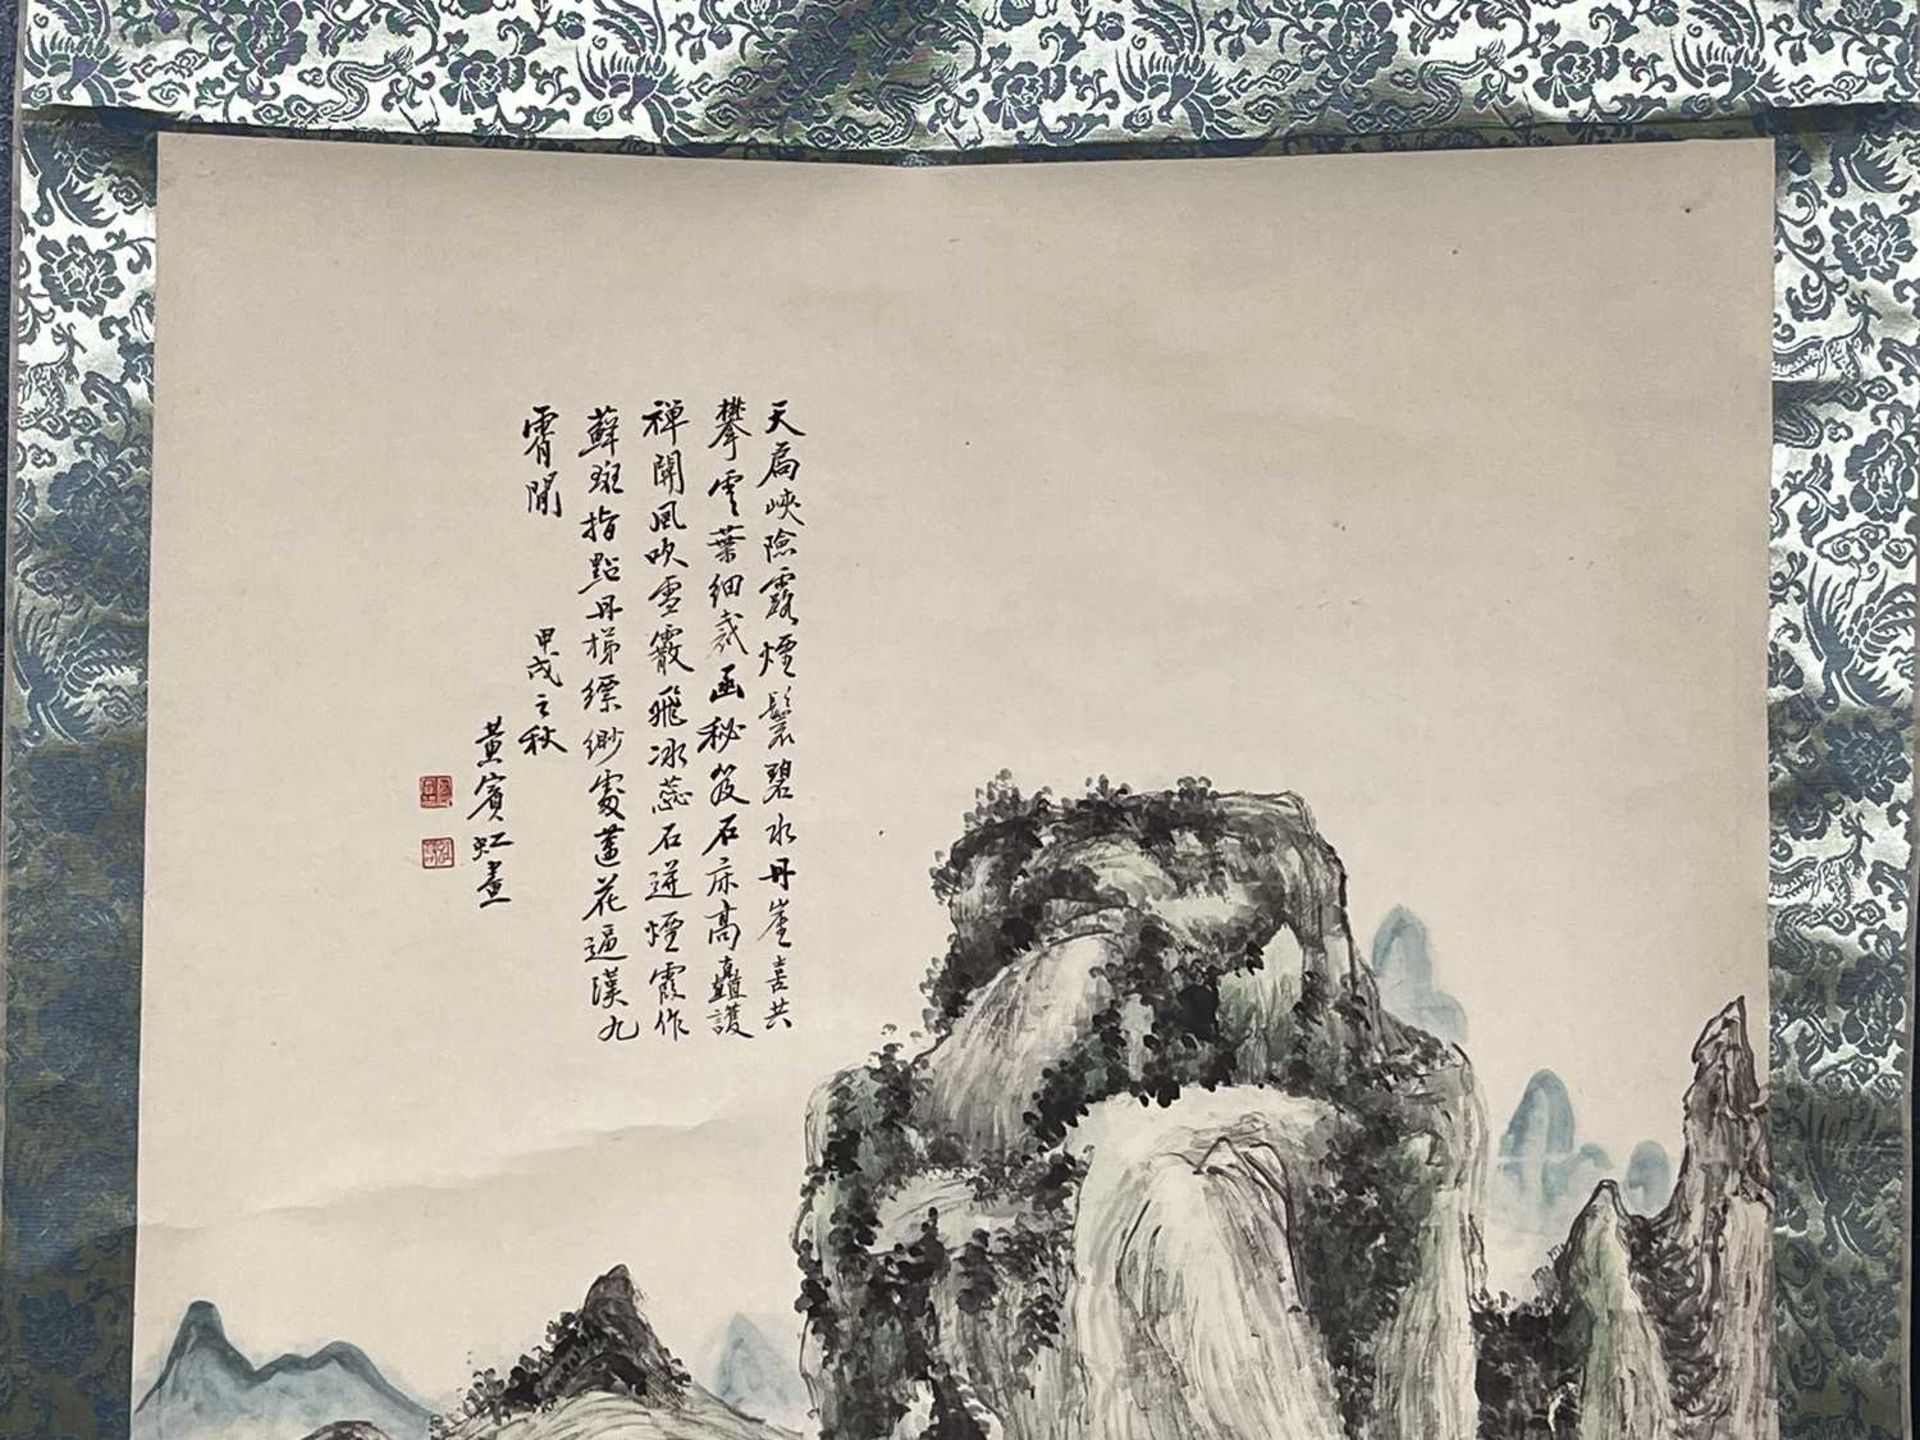 天為峽險露煙鬟碧水丹崖喜共
攀雲葉細裁函秘笈石床高矗護
禪關風吹雪霰飛冰蕊石迸煙霞作
蘚斑指點丹梯縹緲處蓮花逼漢九
霄間
甲戌之秋
黃賓虹畫